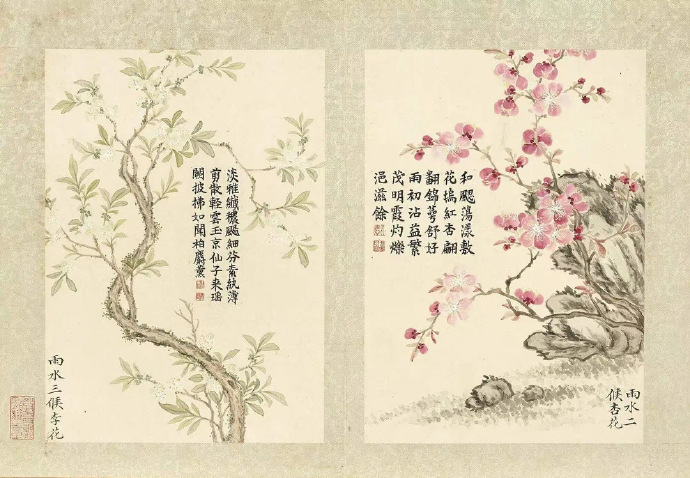 雨水二
候杏花
和颸蕩漾敷
花塢紅杏翩
翻錦萼舒好
雨初沾益繁
茂明霞灼爍
浥滋餘
淡雅纖穠颸細芬素紈薄
剪散輕雲玉京仙子來瑤
闕披拂如聞柏麝薰
雨水三候李花